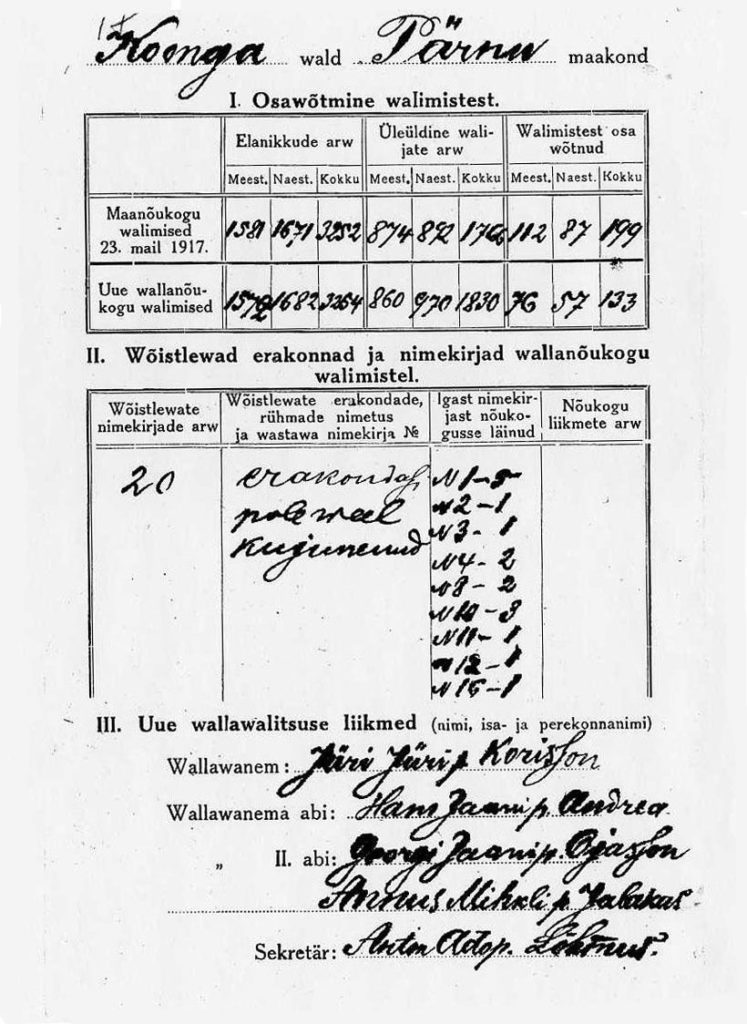 Koonga wald Pärnu maakond
I. Osawõtmine walimistest.
Elanikkude arw Üleüldine wali-jate arw Walimistest osa wõtnud
Meest. Naest. Kokku Meest. Naest. Kokku Meest. Naest. Kokku
Maanõukogu walimised 23. mail 1917. 1581 1671 3252 874 892 1766 112 87 199
Uue wallanõu-kogu walimised 1572 1682 3254 860 970 1830 76 57 133
II. Wõistlewad erakonnad ja nimekirjad wallanõukogu
walimistel.
Wõistlewate nimekirjade arw
Wõistlewate erakondade, rühmade nimetus ja wastawa nimekirja №
Igast nimekir-jast nõuko-gusse läinud
Nõukogu liikmete arw
20 erakondasi N 1-5
pole weel N 2-1
N 3-1
kujunenud N 4-2
N 8-2
N 10-3
N 11-1
N 12-1
N 15-1
III. Uue wallawalitsuse liikmed (nimi, isa- ja perekonnanimi)
Wallawanem: Jüri Jüri p. Korisson
Wallawanema abi: Hans Jaani p. Andrea
„ II. abi: Georgi Jaani p. Ojasson
Annus Mihkli p. Jalakas
Sekretär: Anton Ado p. Lõhmus